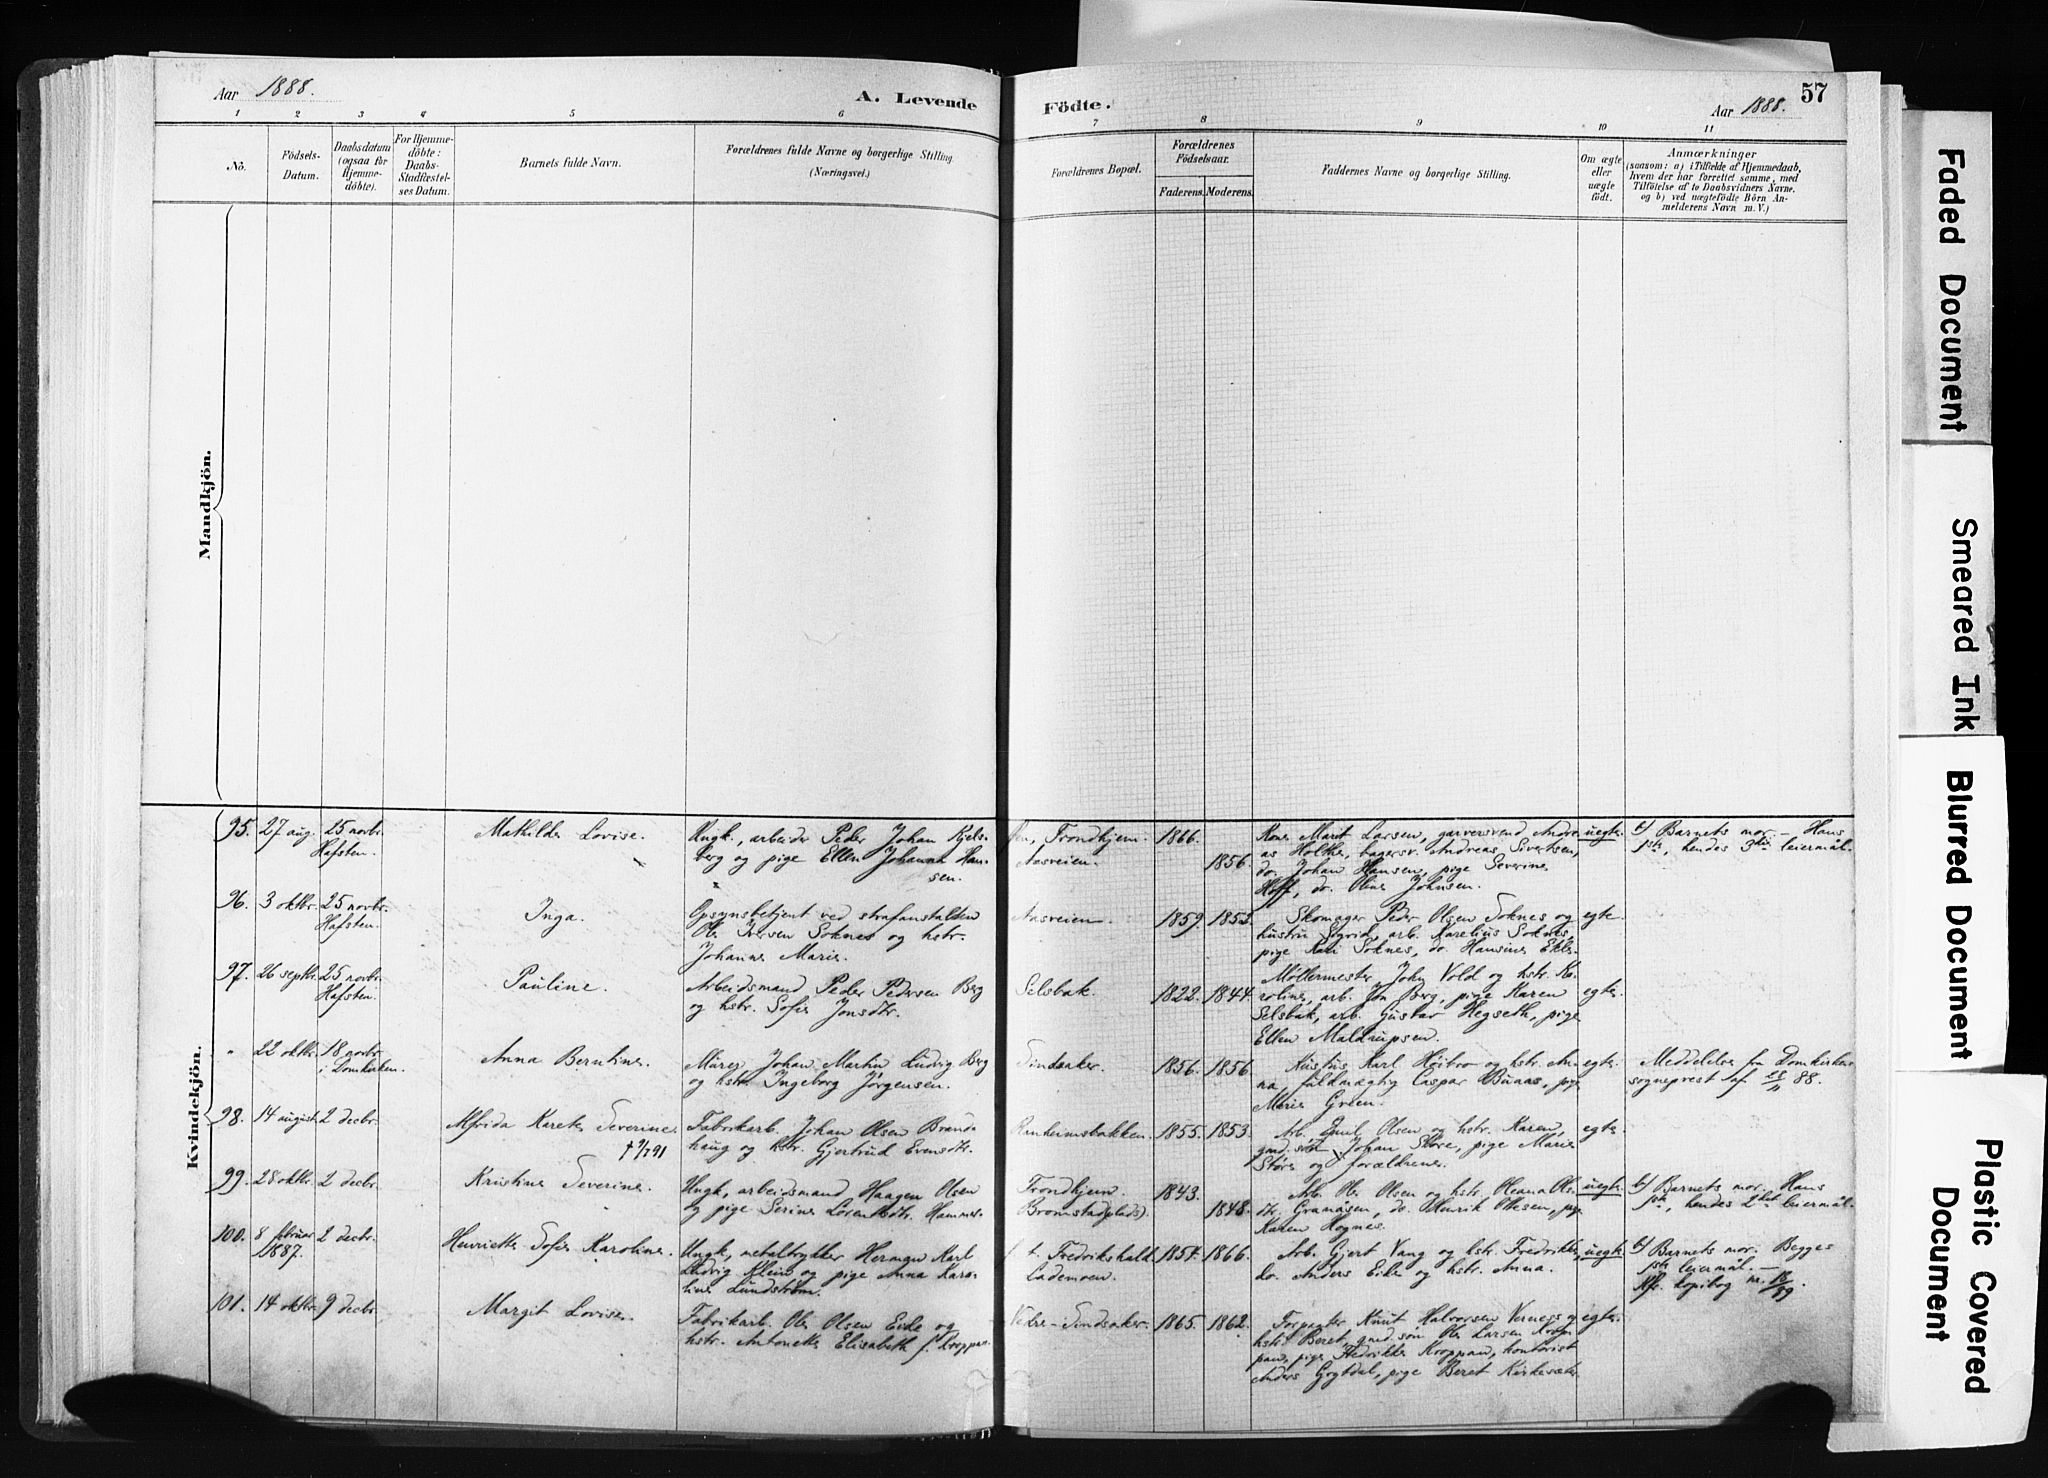 Aar 1888.
A. Levende
Födte.
Aar 1888.
57
1 2 3 4 5 6 7 8 9 10 11
No.
Födsels-
Datum.
Daabsdatum
(ogsaa for
Hjemme-
döbte).
For Hjemme-
döbte:
Daabs-
Stadfæstel-
ses Datum.
Barnets fulde Navn.
Forældrenes fulde Navne og borgerlige Stilling
(Næringsvei.)
Forældrenes Bopæl.
Forældrenes
Födselsaar.
Faderens. Moderens.
Faddernes Navne og borgerlige Stilling.
Om ægte
eller
uægte
födt.
Anmærkninger
(saasom: a) i Tilfælde af Hjemmedaab,
hvem der har forrettet samme, med
Tilföielse af to Daabsvidners Navne,
og b) ved uægtefödte Börn An-
melderens Navn m. V.)
Mandkjön.
Kvindekjön.
95. 27 aug. 25 novbr. Mathilde Lovise. Ungk., arbeider Peder Johan Kjels- Trondhjem. 1866. Kone Marit Larsen, garversvend Andre- uegte. b) Barnets mor. – Hans
Hafsten. berg og pige Ellen Johanna Han- Aasveien. 1856. as Holthe, bagersv. Andreas Sivertsen, 1ste, hendes 3die leiermål.
sen. do. Johan Hansen, pige Severine
Hoff, do. Oline Johnsen.
96. 3 oktbr. 25 novbr. Inga. Opsynsbetjent ved strafanstalten Aasveien. 1859. 1853. Skomager Peder Olsen Soknes og egte.
Hafsten. Ole Iversen Soknes og hstr. hustru Sigrid, arb. Karelius Soknes,
Johanne Marie. pige Soknes, do. Hansine
97. 26 septbr. 25 novbr. Pauline. Arbeidsmand Peder Pedersen Berg Selsbak. 1822. 1844. Møllermester John Vold og hstr. Ka- egte.
Hafsten. og hstr. Sofie Jonsdtr. roline, arb. Jon Berg, pige Karen
Selsbak, arb. Gustav Hegseth, pige
Ellen Maldrupsen.
" 22 oktbr. 18 novbr. Anna Berntine. Murer Johan Martin Ludvig Berg Tindsaker. 1856. 1856. Karl og hstr. An- egte. Meddelelse fra Domkirkens
i Domkirken. og hstr. Ingeborg Jørgensen. na, fuldmægtig Caspar Buaas, pige sogneprest af 28/11 88.
Marie Green.
98. 14 august. 2 decbr. Alfrida Karete Severine. Fabrikarb. Johan Olsen Branda- Ranheimsbakken. 1855. 1853. Arb. Emil Olsen og hstr. Karen, egte.
haug og hstr. Gjertrud Evensdtr. gmd.søn Johan Støre, pige Marie
Støre og forældrene.
99. 28 oktbr. 2 decbr. Kristine Severine. Ungk., arbeidsmand Haagen Olsen Trondhjem. 1843. Arb. Ole Olsen og hstr. Oleana Ols- uegte. b) Barnets mor. Hans
og pige Serine Lorentsdtr. Hammer. Bromstad(plads). 1848. dtr. Granåsen, do. Henrik Ottesen, pige 1ste, hendes 2det leiermål.
Karen Hognes.
100. 8 februar 2 decbr. Henriette Sofie Karoline. Ungk., metaltrykker Herman Karl f. t. Fredrikshald. 1857. 1866. Arb. Gjert Vang og hstr. Fredrikke, uegte. b) Barnets mor. Begges
1887. Ludvig Klein og pige Anna Karo- Lademoen. do. Anders Eide og hstr. Anna. 1ste leiermål. –
line Lundström. kopibog nr.
101. 14 oktbr. 9 decbr. Margit Lovise. Fabrikarb. Ole Olsen Eide og Vedre-Tindsaker. 1865. 1862. Forpagter Knut Halvorsen Verness og egte.
hstr. Antonette Elisabeth f. Kroppan. hstr. Beret, gmd.søn Ole Larsen Krop-
pan, pige Fredrikke Kroppan, kontorist
Anders pige Beret Kirkesæter.
Faded Document
Smeared Ink
Blurred Document
Plastic Covered
Document